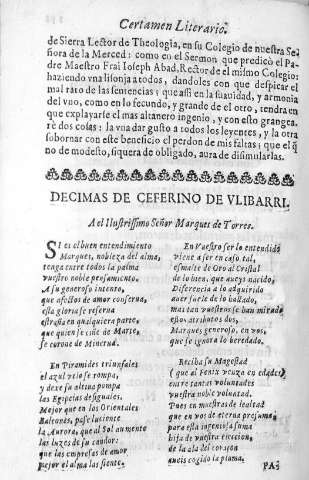 Certamen Literario.
de Sierra Lector de Theologia, en su Colegio de nuestra Se-
ñora de la Merced: como en el Sermon que predicò el Pa-
dre Maestro Frai Ioseph Abad, Rector de el mismo Colegio:
haziendo vna lisonja a todos, dandoles con que despicar el
mal rato de las sentencias; que assi en la suauidad, y armonia
del vno, como en lo fecundo, y grande de el otro, tendra en
que explayarse el mas altanero ingenio, y con esto grangea-
rè dos cosas: la vna dar gusto a todos los leyentes, y la otra
sobornar con este beneficio el perdon de mis faltas; que el q̃
no de modesto, siquera de obligado, aura de disimularlas.
DECIMAS DE CEFERINO DE VLIBARRI.
A el Ilustrissimo Señor Marques de Torres.
SI es el buen entendimiento
Marques, nobleza del alma,
tenga entre todos la palma
vuestro noble pensamiento.
A su generoso intento,
que afectos de amor conserua,
esta gloria se reserua
estraña en qualquiera parte,
que quien se ciñe de Marte,
se corone de Minerua.
En Piramides triunfales
el azul velo se rompa,
y dexe su altiua pompa
las Egipcias desiguales.
Mejor que en los Orientales
Balcones, pase luciente
la Aurora, que al Sol aumento
las luzes de su candor:
que las empresas de amor
mejor el alma las siente.
En Vuestro ser lo entendido
viene a ser en caso tal,
esmalte de Oro al Cristal
de lo bien, que aueys nacido,
Diferencia a lo adquirido
auer suele de lo hallado,
mas tan vuestros se han mirado
estos atributos dos,
Marques generoso, en vos,
que se ignora lo heredado.
Reciba su Magestad
(que al Fenix venza en edades)
entre tantas voluntades
vuestra noble voluntad.
Pues en muestras de lealtad
que en vos de eterna presume
para esta
hija de vuestra
de la ala del coraçon
aueis cogido la pluma.
PA-